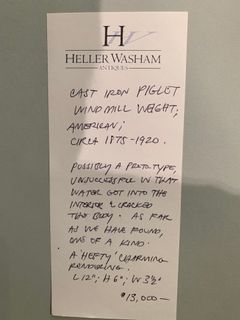 H
HELLER WASHAM
ANTIQUES
CAST IRON PIGLET
WINDMILL WEIGHT;
AMERICAN;
CIRCA 1875-1920.
POSSIBLY A PROTOTYPE,
UNSUCCESSFUL IN THAT
WATER GOT INTO THE
INTERIOR & CRACKED
THE BODY. AS FAR
AS WE HAVE FOUND,
ONE OF A KIND.
A "HEFTY" CHARMING
RENDERING.
L 12"; H 6"; W 3½"
$13,000—